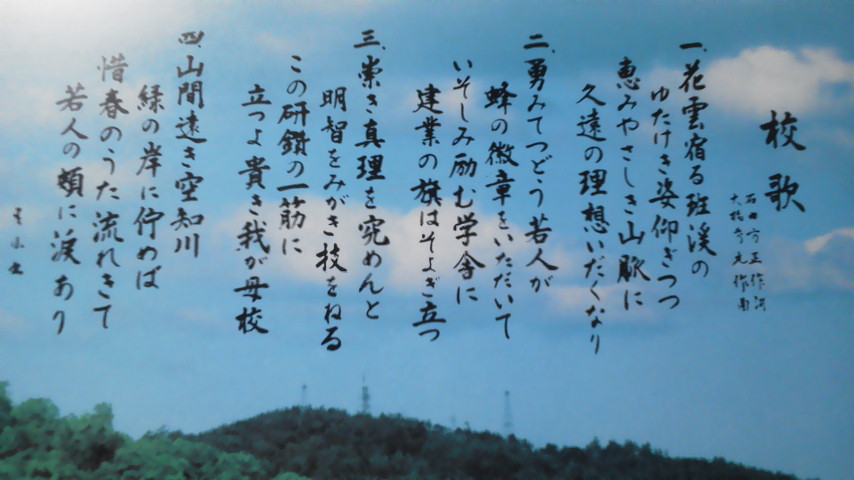 校歌
石田方正作詞
一、花雲宿る班渓の
ゆたけき姿仰ぎつつ
恵みやさしき山脈に
久遠の理想いだくなり
二、勇みてつどう若人が
蜂の徽章をいただいて
いそしみ励む学舎に
建業の旗はそよぎ立つ
三、崇き真理を究めんと
明智をみがき技をねる
この研鑚の一筋に
立つよ貴き我が母校
四、山間遠き空知川
緑の岸に佇めば
惜春のうた流れきて
若人の頬に涙あり